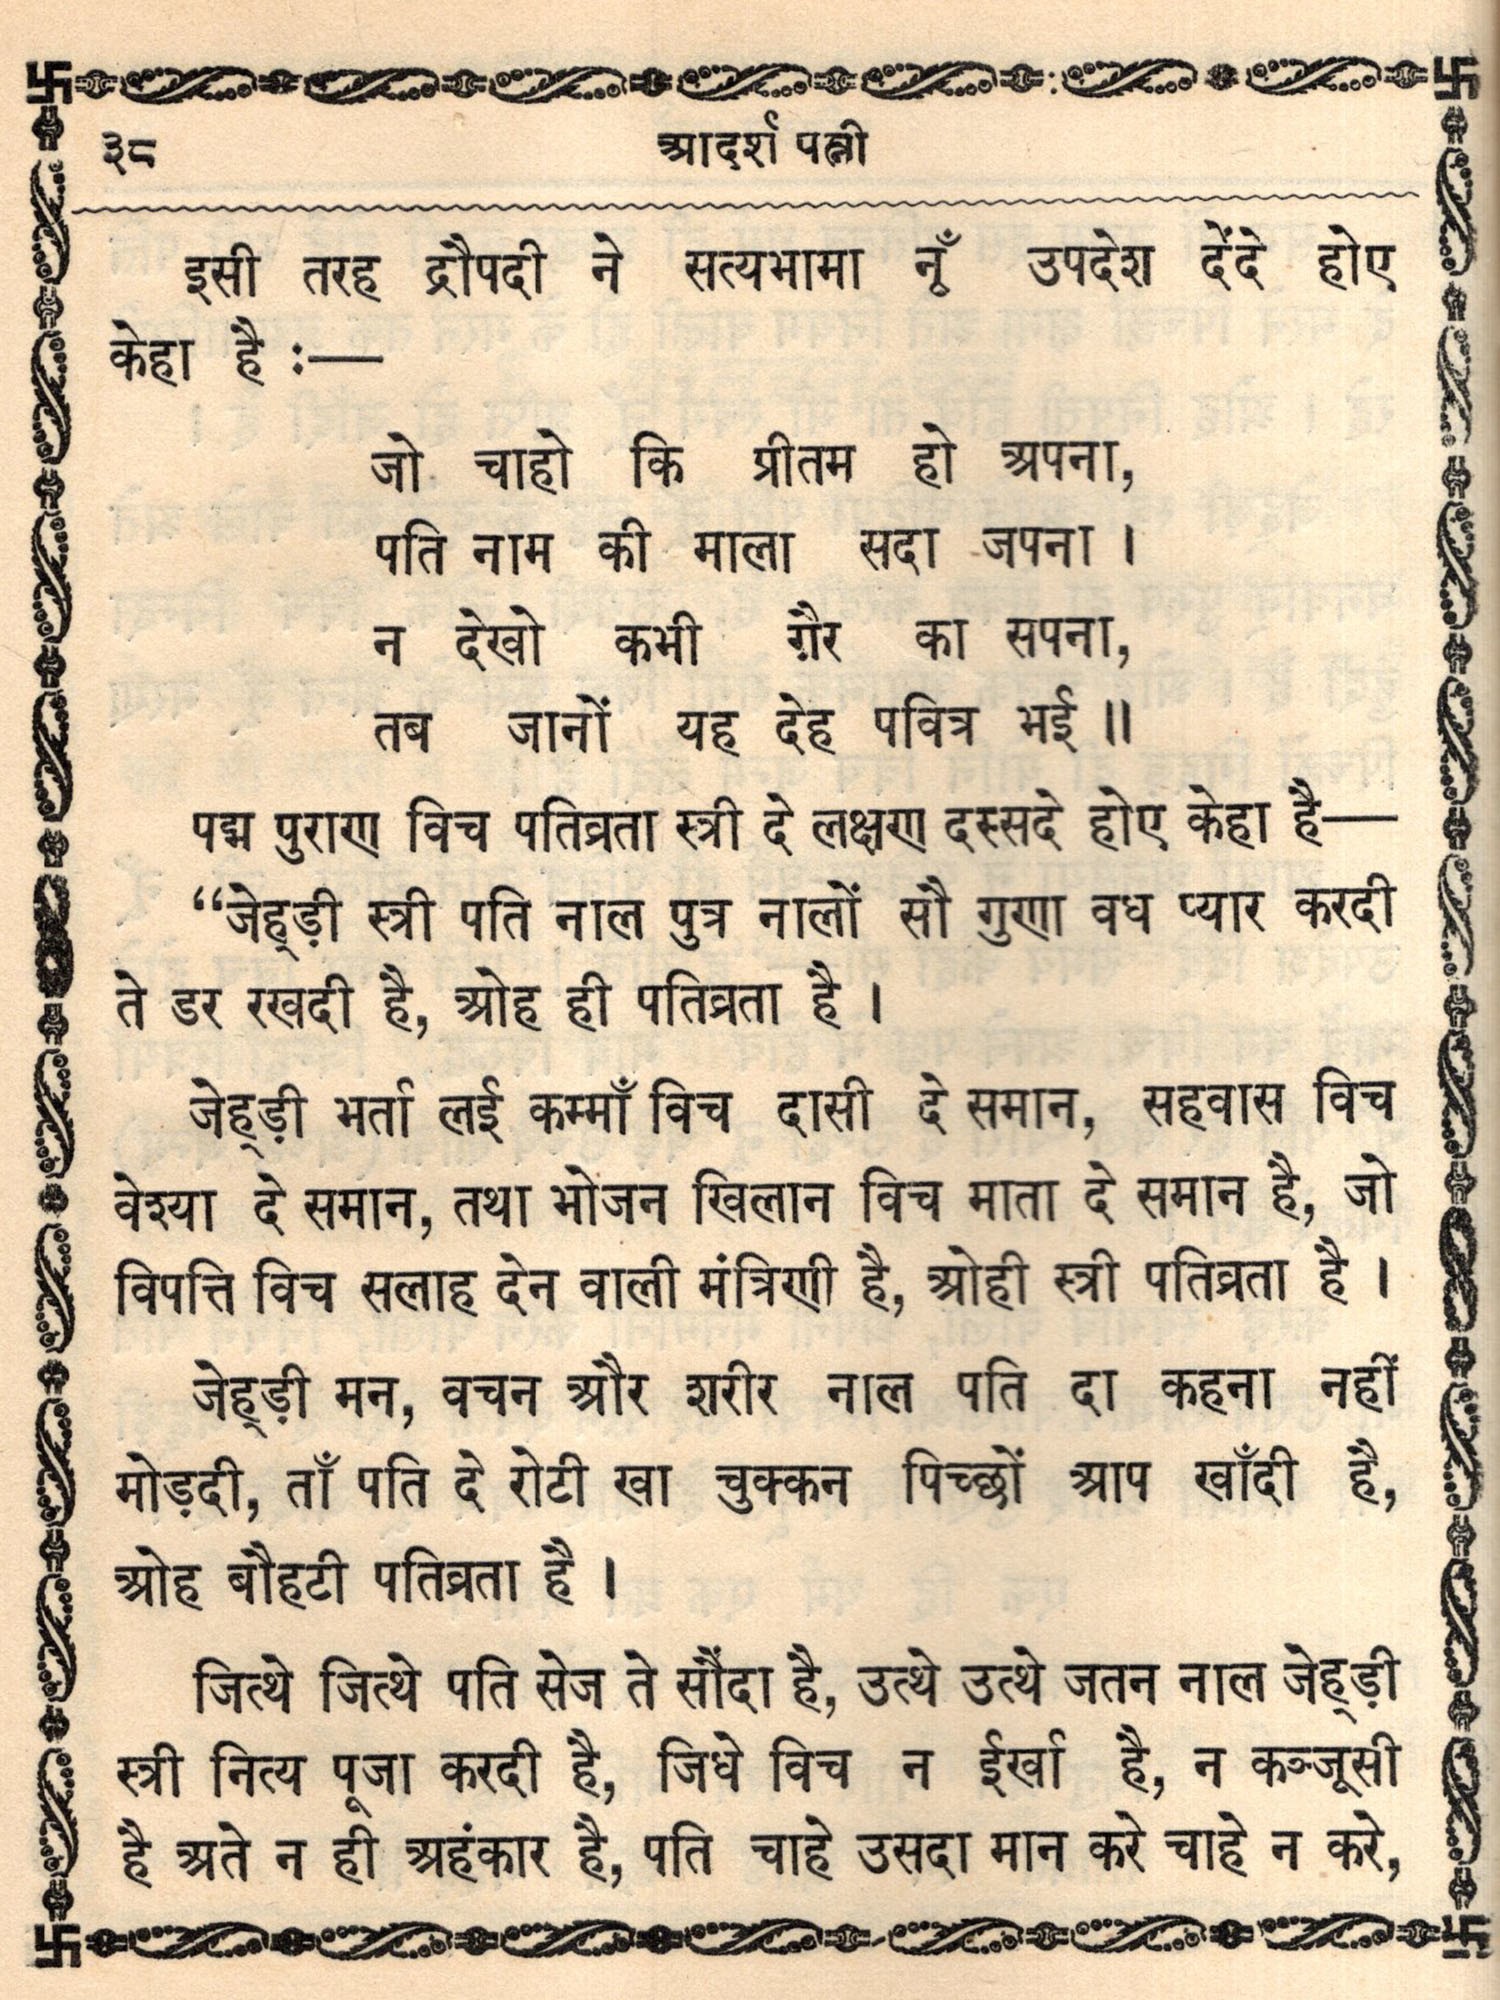 ३८
आदर्श पत्नी
इसी तरह द्रौपदी ने सत्यभामा नूँ उपदेश देंदे होए
केहा है :—
जो चाहो कि प्रीतम हो अपना,
पति नाम की माला सदा जपना ।
न देखो कभी ग़ैर का सपना,
तब जानों यह देह पवित्र भई ॥
पद्म पुराण विच पतिव्रता स्त्री दे लक्षण दस्सदे होए केहा है—
“जेह्ड़ी स्त्री पति नाल पुत्र नालों सौ गुणा वध प्यार करदी
ते डर रखदी है, ओह ही पतिव्रता है ।
जेह्ड़ी भर्ता लई कम्माँ विच दासी दे समान, सहवास विच
वेश्या दे समान, तथा भोजन खिलान विच माता दे समान है, जो
विपत्ति विच सलाह देन वाली मंत्रिणी है, ओही स्त्री पतिव्रता है ।
जेह्ड़ी मन, वचन और शरीर नाल पति दा कहना नहीं
मोड़दी, ताँ पति दे रोटी खा चुक्कन पिच्छों आप खाँदी है,
ओह बौहटी पतिव्रता है ।
जित्थे जित्थे पति सेज ते सौंदा है, उत्थे उत्थे जतन नाल जेह्ड़ी
स्त्री नित्य पूजा करदी है, जिधे विच न ईर्खा है, न कञ्जूसी
है अते न ही अहंकार है, पति चाहे उसदा मान करे चाहे न करे,